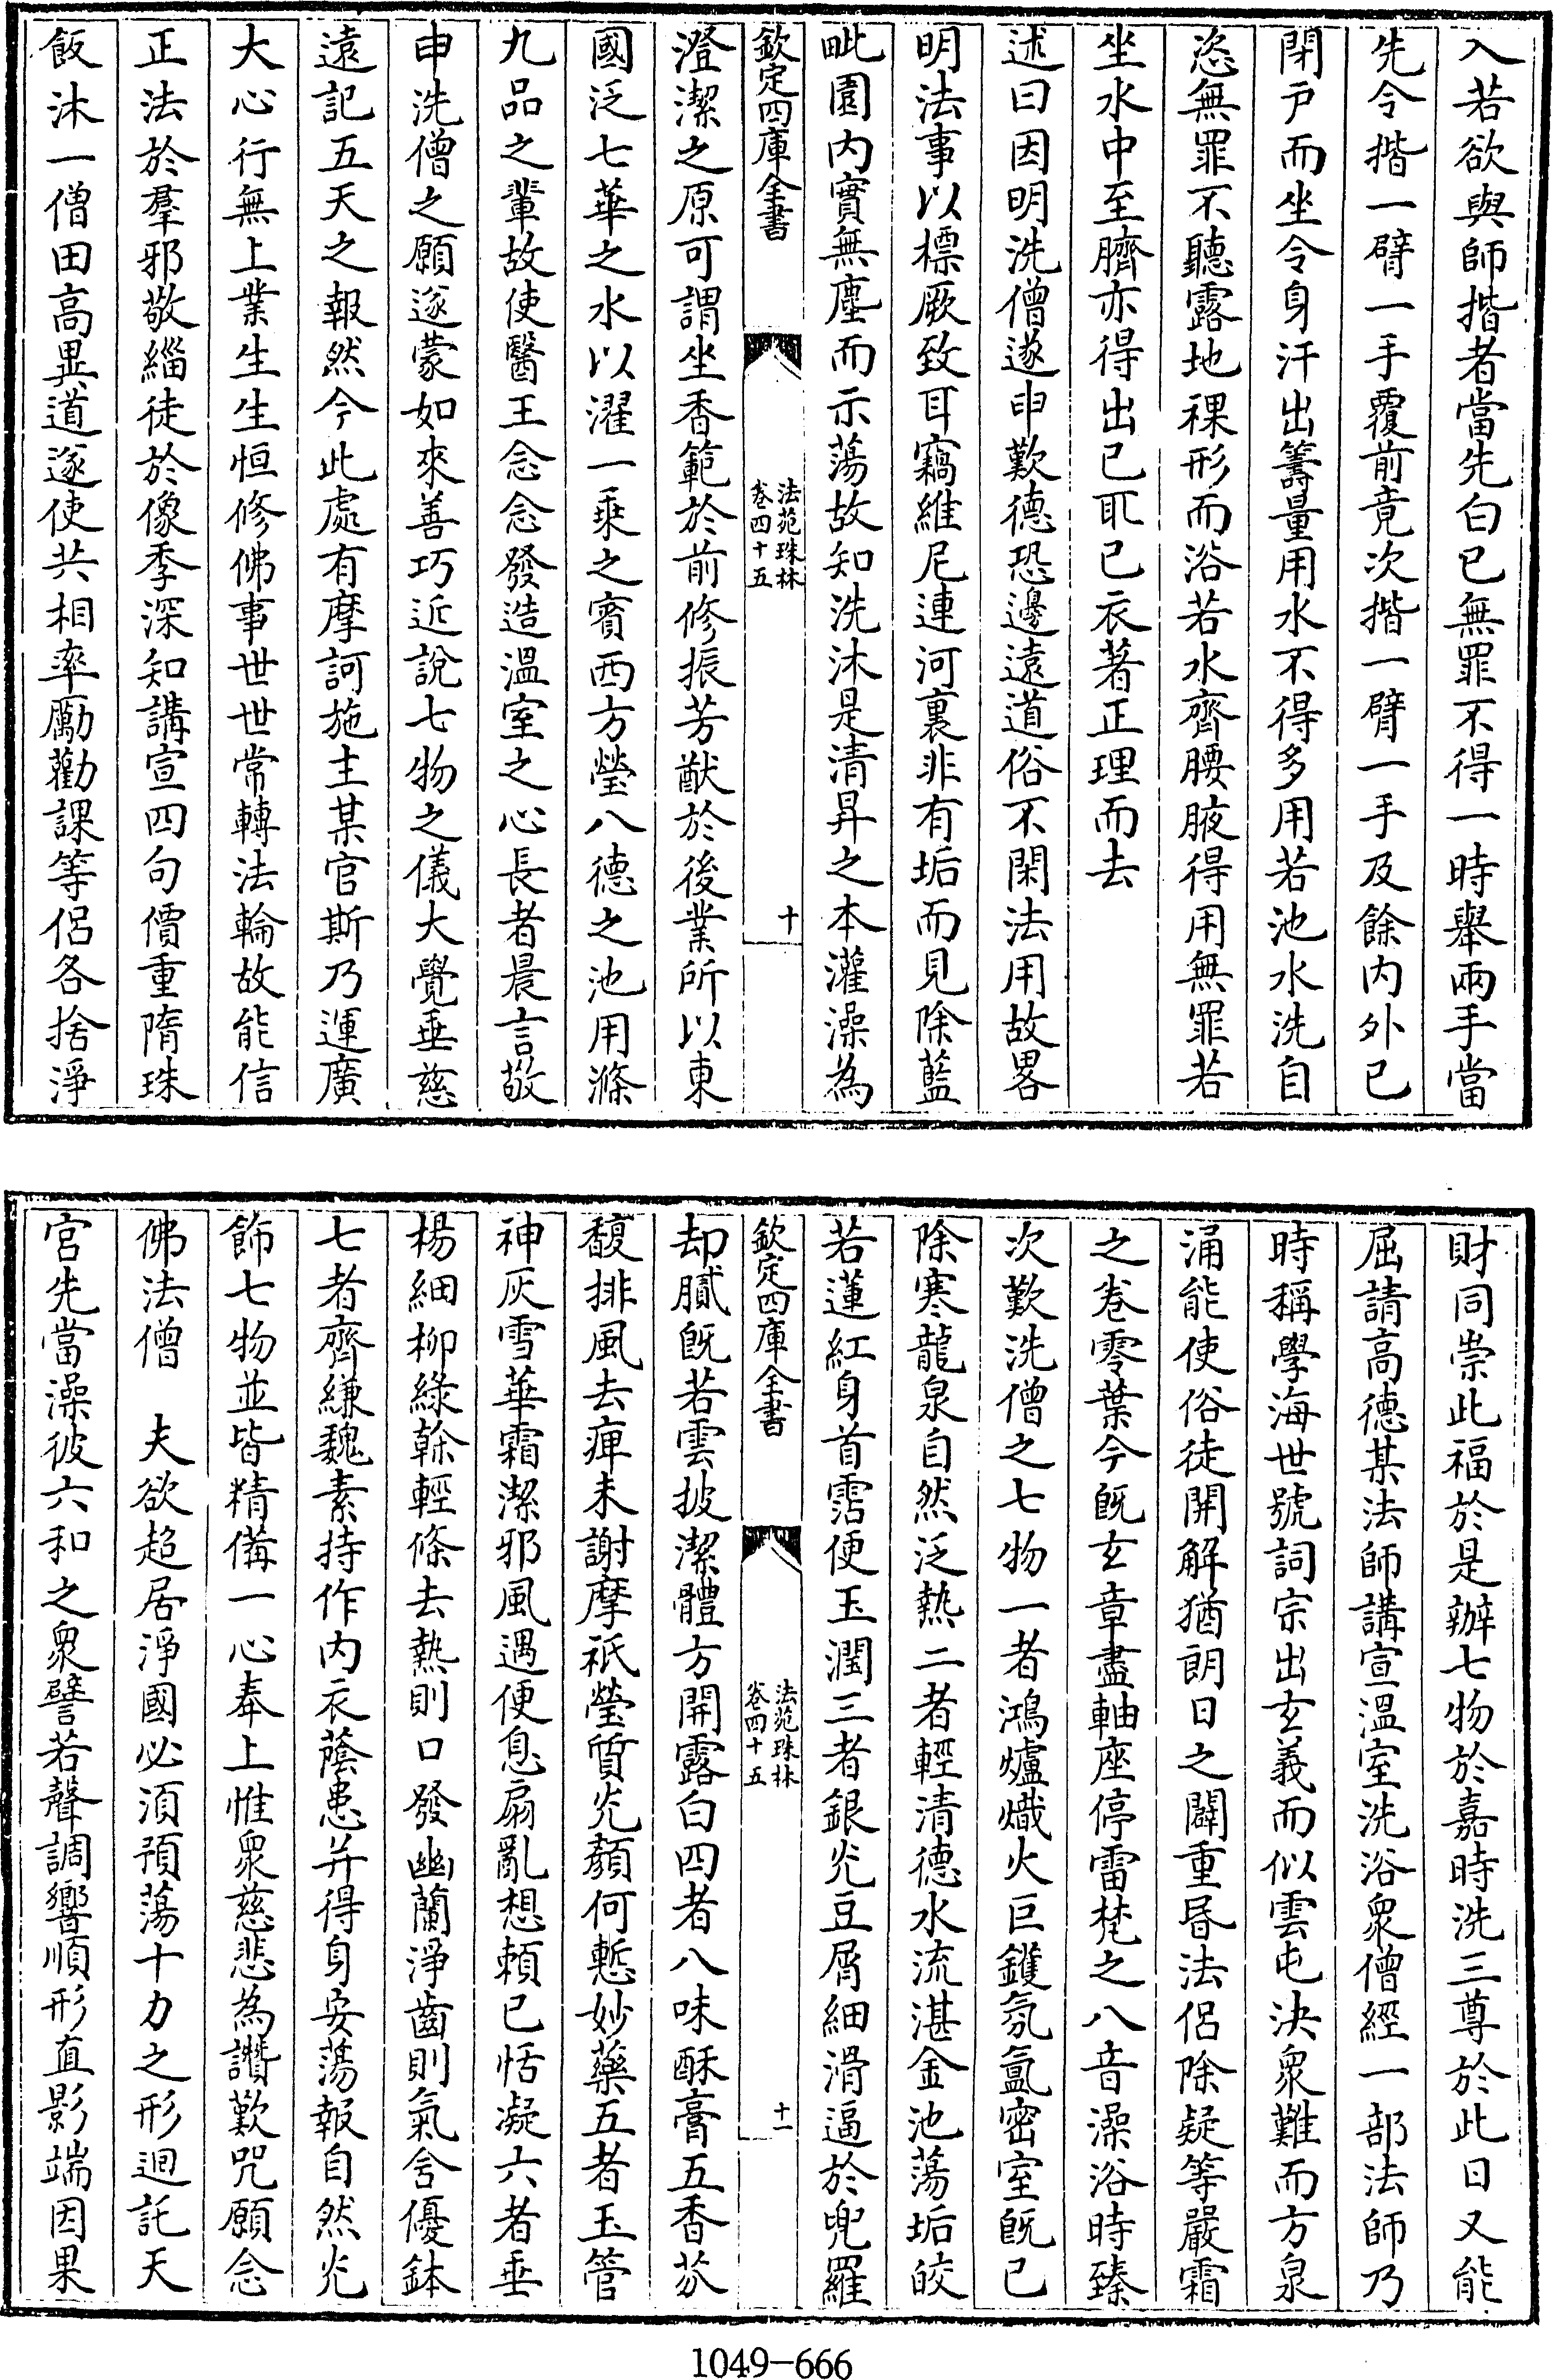 入若欲與師揩者當先白已無罪不得一時舉兩手當
先令揩一臂一手覆前竟次揩一臂一手及餘内外已
閉户而坐令身汗出籌量用水不得多用若池水洗自
恣無罪不聽露地裸形而浴若水齊腰腋得用無罪若
坐水中至臍亦得出已取已衣著正理而去
述曰因明洗僧遂申歎德恐邊遠道俗不閑法用故畧
明法事以標厥致耳竊維尼連河裏非有垢而見除藍
毗園内實無塵而示蕩故知洗沐是清昇之本灌澡為
欽定四庫全書
法苑珠林
卷四十五
十
澄潔之原可謂坐香範於前修振芳猷於後業所以東
國泛七華之水以濯一乗之賓西方瑩八德之池用滌
九品之輩故使醫王念念發造溫室之心長者晨言敬
申洗僧之願遂蒙如來善巧近說七物之儀大覺垂慈
遠記五天之報然今此處有摩訶施主某官斯乃運廣
大心行無上業生生恒修佛事世世常轉法輪故能信
正法於羣邪敬緇徒於像季深知講宣四句價重隋珠
飯沐一僧田高異道遂使共相率勵勸課等侣各捨淨
財同崇此福於是辦七物於嘉時洗三尊於此日又能
屈請高德某法師講宣溫室洗浴衆僧經一部法師乃
時稱學海世號詞宗出玄義而似雲屯決衆難而方泉
涌能使俗徒開解猶朗日之闢重昏法侣除疑等嚴霜
之卷零葉今既玄章盡軸座停雷梵之八音澡浴時臻
次歎洗僧之七物一者鴻爐熾火巨鑊氛氲密室既已
除寒龍泉自然泛熱二者輕清德水流湛金池蕩垢皎
若蓮紅身首霑便玉潤三者銀光豆屑細滑逼於兜羅
欽定四庫全書
法苑珠林
卷四十五
十一
却膩既若雲披潔體方開露白四者八味酥膏五香芬
馥排風去痺未謝摩祇瑩質光顏何慙妙藥五者玉管
神灰雪華霜潔邪風遇便息扇亂想頼已恬凝六者垂
楊細柳綠榦輕條去熱則口發幽蘭淨齒則氣含優鉢
七者齊縑魏素持作内衣蔭患并得身安蕩報自然光
飾七物並皆精備一心奉上惟衆慈悲為讚歎咒願念
佛法僧　夫欲超居淨國必湏預蕩十力之形迴託天
宮先當澡彼六和之衆譬若聲調響順形直影端因果
1049-666